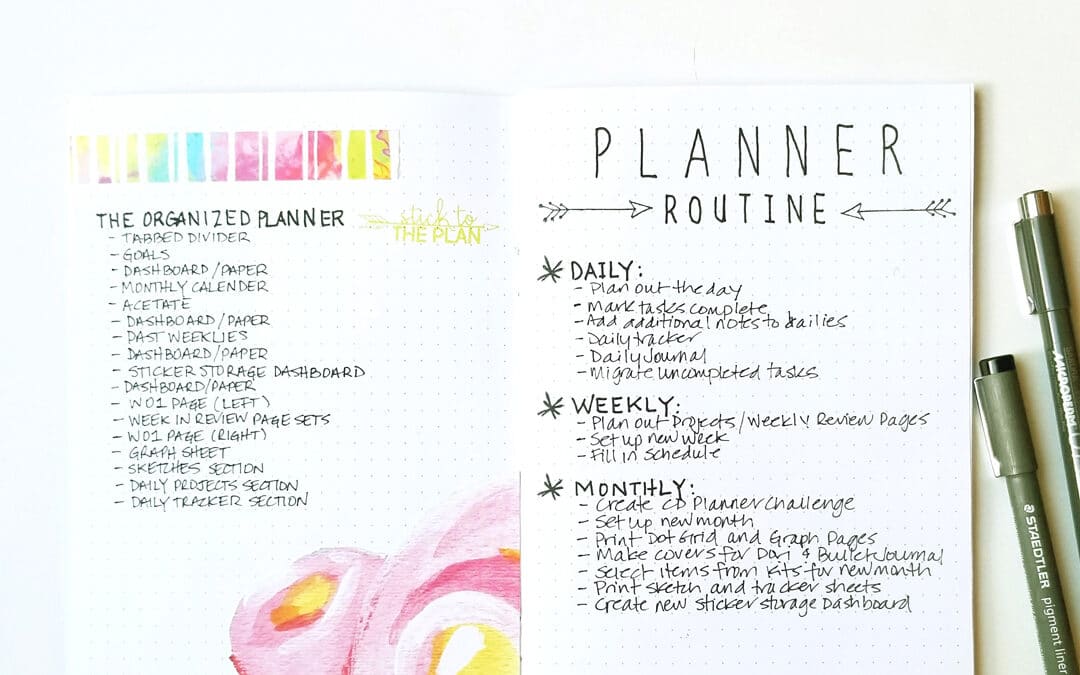 THE ORGANIZED PLANNER
- TABBED DIVIDER
- GOALS
- DASHBOARD/PAPER
- MONTHLY CALENDER
- ACETATE
- DASHBOARD/PAPER
- PAST WEEKLIES
- DASHBOARD/PAPER
- STICKER STORAGE DASHBOARD
- DASHBOARD/PAPER
- WO1 PAGE (LEFT)
- WEEK IN REVIEW PAGE SETS
- WO1 PAGE (RIGHT)
- GRAPH SHEET
- SKETCHES SECTION
- DAILY PROJECTS SECTION
- DAILY TRACKER SECTION
stick to
THE PLAN
PLANNER
ROUTINE
DAILY:
- Plan out the day
- Mark tasks complete
- Add additional notes to dailies
- Daily tracker
- Daily Journal
- Migrate uncompleted tasks
WEEKLY:
- Plan out Projects/Weekly Review Pages
- Set up new week
- Fill in schedule
MONTHLY:
- Create CD Planner Challenge
- Set up new month
- Print Dot Grid and Graph Pages
- Make covers for Dori & Bullet Journal
- Select items from Kits for new month
- Print sketch and tracker sheets
- Create new Sticker storage Dashboard
MICROPERM
STAEDTLER pigment liner